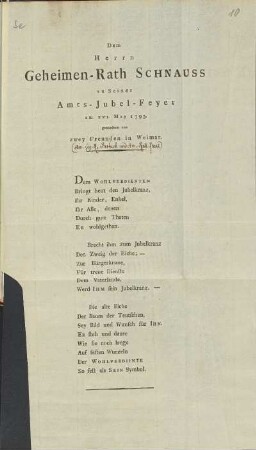 Dem
Herrn
Geheimen-Rath SCHNAUSS
zu Seiner
Amts-Jubel-Feyer
am May
gewidmet von
zwey Freunden in Weimar.
DEM WOHLVERDIENTEN
Bringt heut den Jubelkranz,
Ihr Kinder, Enkel,
Ihr Alle, denen
Durch gute Thaten
Er wohlgethan.
Bracht ihm zum Jubelkranz
Den Zweig der Eiche; —
Zur Bürgerkrone,
Für treue Dienste
Dem Vaterlande,
Werd IHM sein Jubelkranz. —
Die alte Eiche
Der Baum der Teutschen,
Sey Bild und Wunsch für IHN.
Es steh und daure
Wie Sie noch lange
Auf festen Wurzeln
DER WOHLVERDIENTE
So fest als SEIN Symbol.